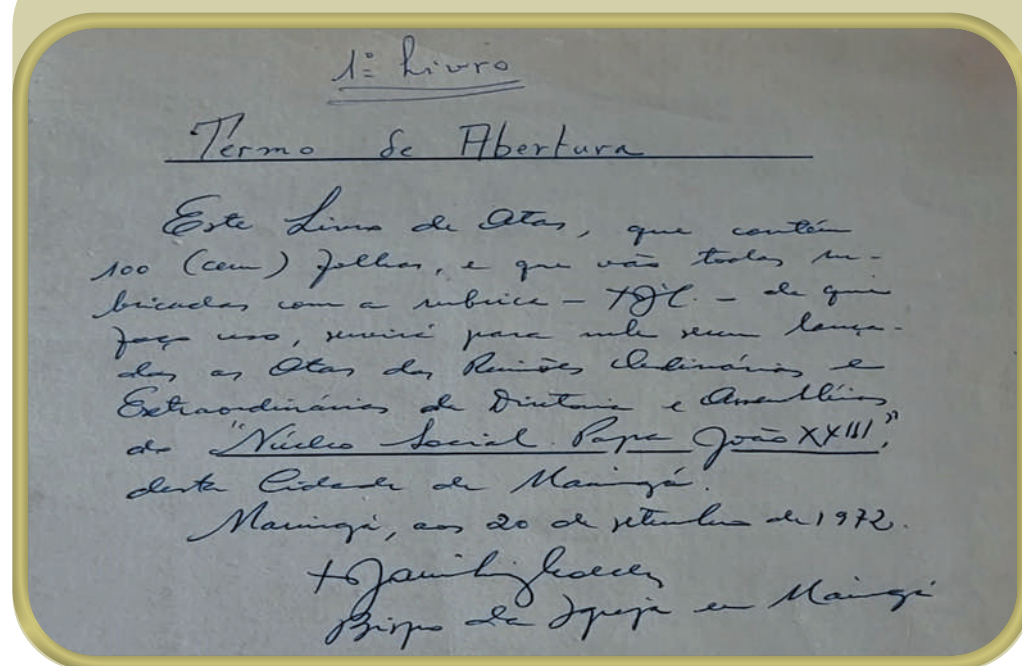 1º Livro
Termo de Abertura
Este Livro de Atas, que contém
100 (cem) folhas, e que vão todas ru-
bricadas com a rubrica – – de que
faço uso, servirá para nele serem lança-
das as Atas das Reuniões Ordinárias e
Extraordinárias de Diretoria e Assembléias
do "Núcleo Social Papa João XXIII",
desta Cidade de Maringá.
Maringá, aos 20 de setembro de 1972.
+ Jaime Luiz Coelho
Bispo da Igreja em Maringá